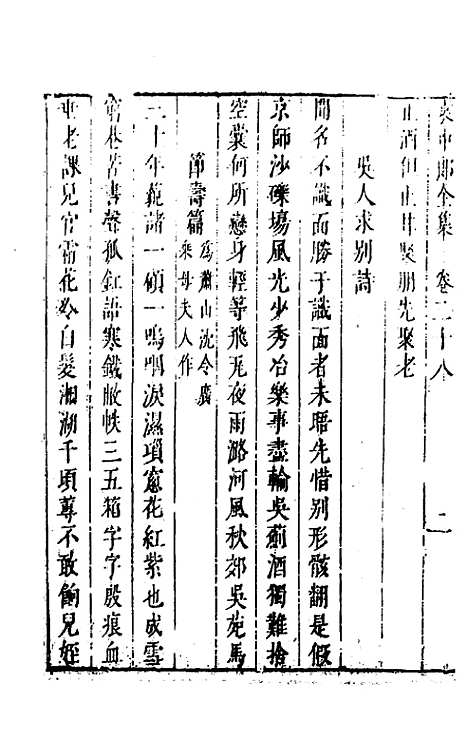 袁中郎全集 卷二十八 二
止酒但止甘聚朋先聚老
吳人求別詩
聞名不識面勝于識面者未晤先惜别形骸翻是假
京師沙礫場風光少秀冶樂事盡輸吳薊酒獨難捨
空囊何所戀身輕等飛瓦夜雨潞河風秋郊吳苑馬
節壽篇 爲蕭山沈令廣
乘母夫人作
二十年範諸一碩一鳴咽淚濕瑣窓花紅紫也成雪
窮巷苦書聲孤釭語寒鐵敝帙三五箱字字殷痕血
老課兒官霜花冷白髮湘湖千頃蓴不敢餉兒姪